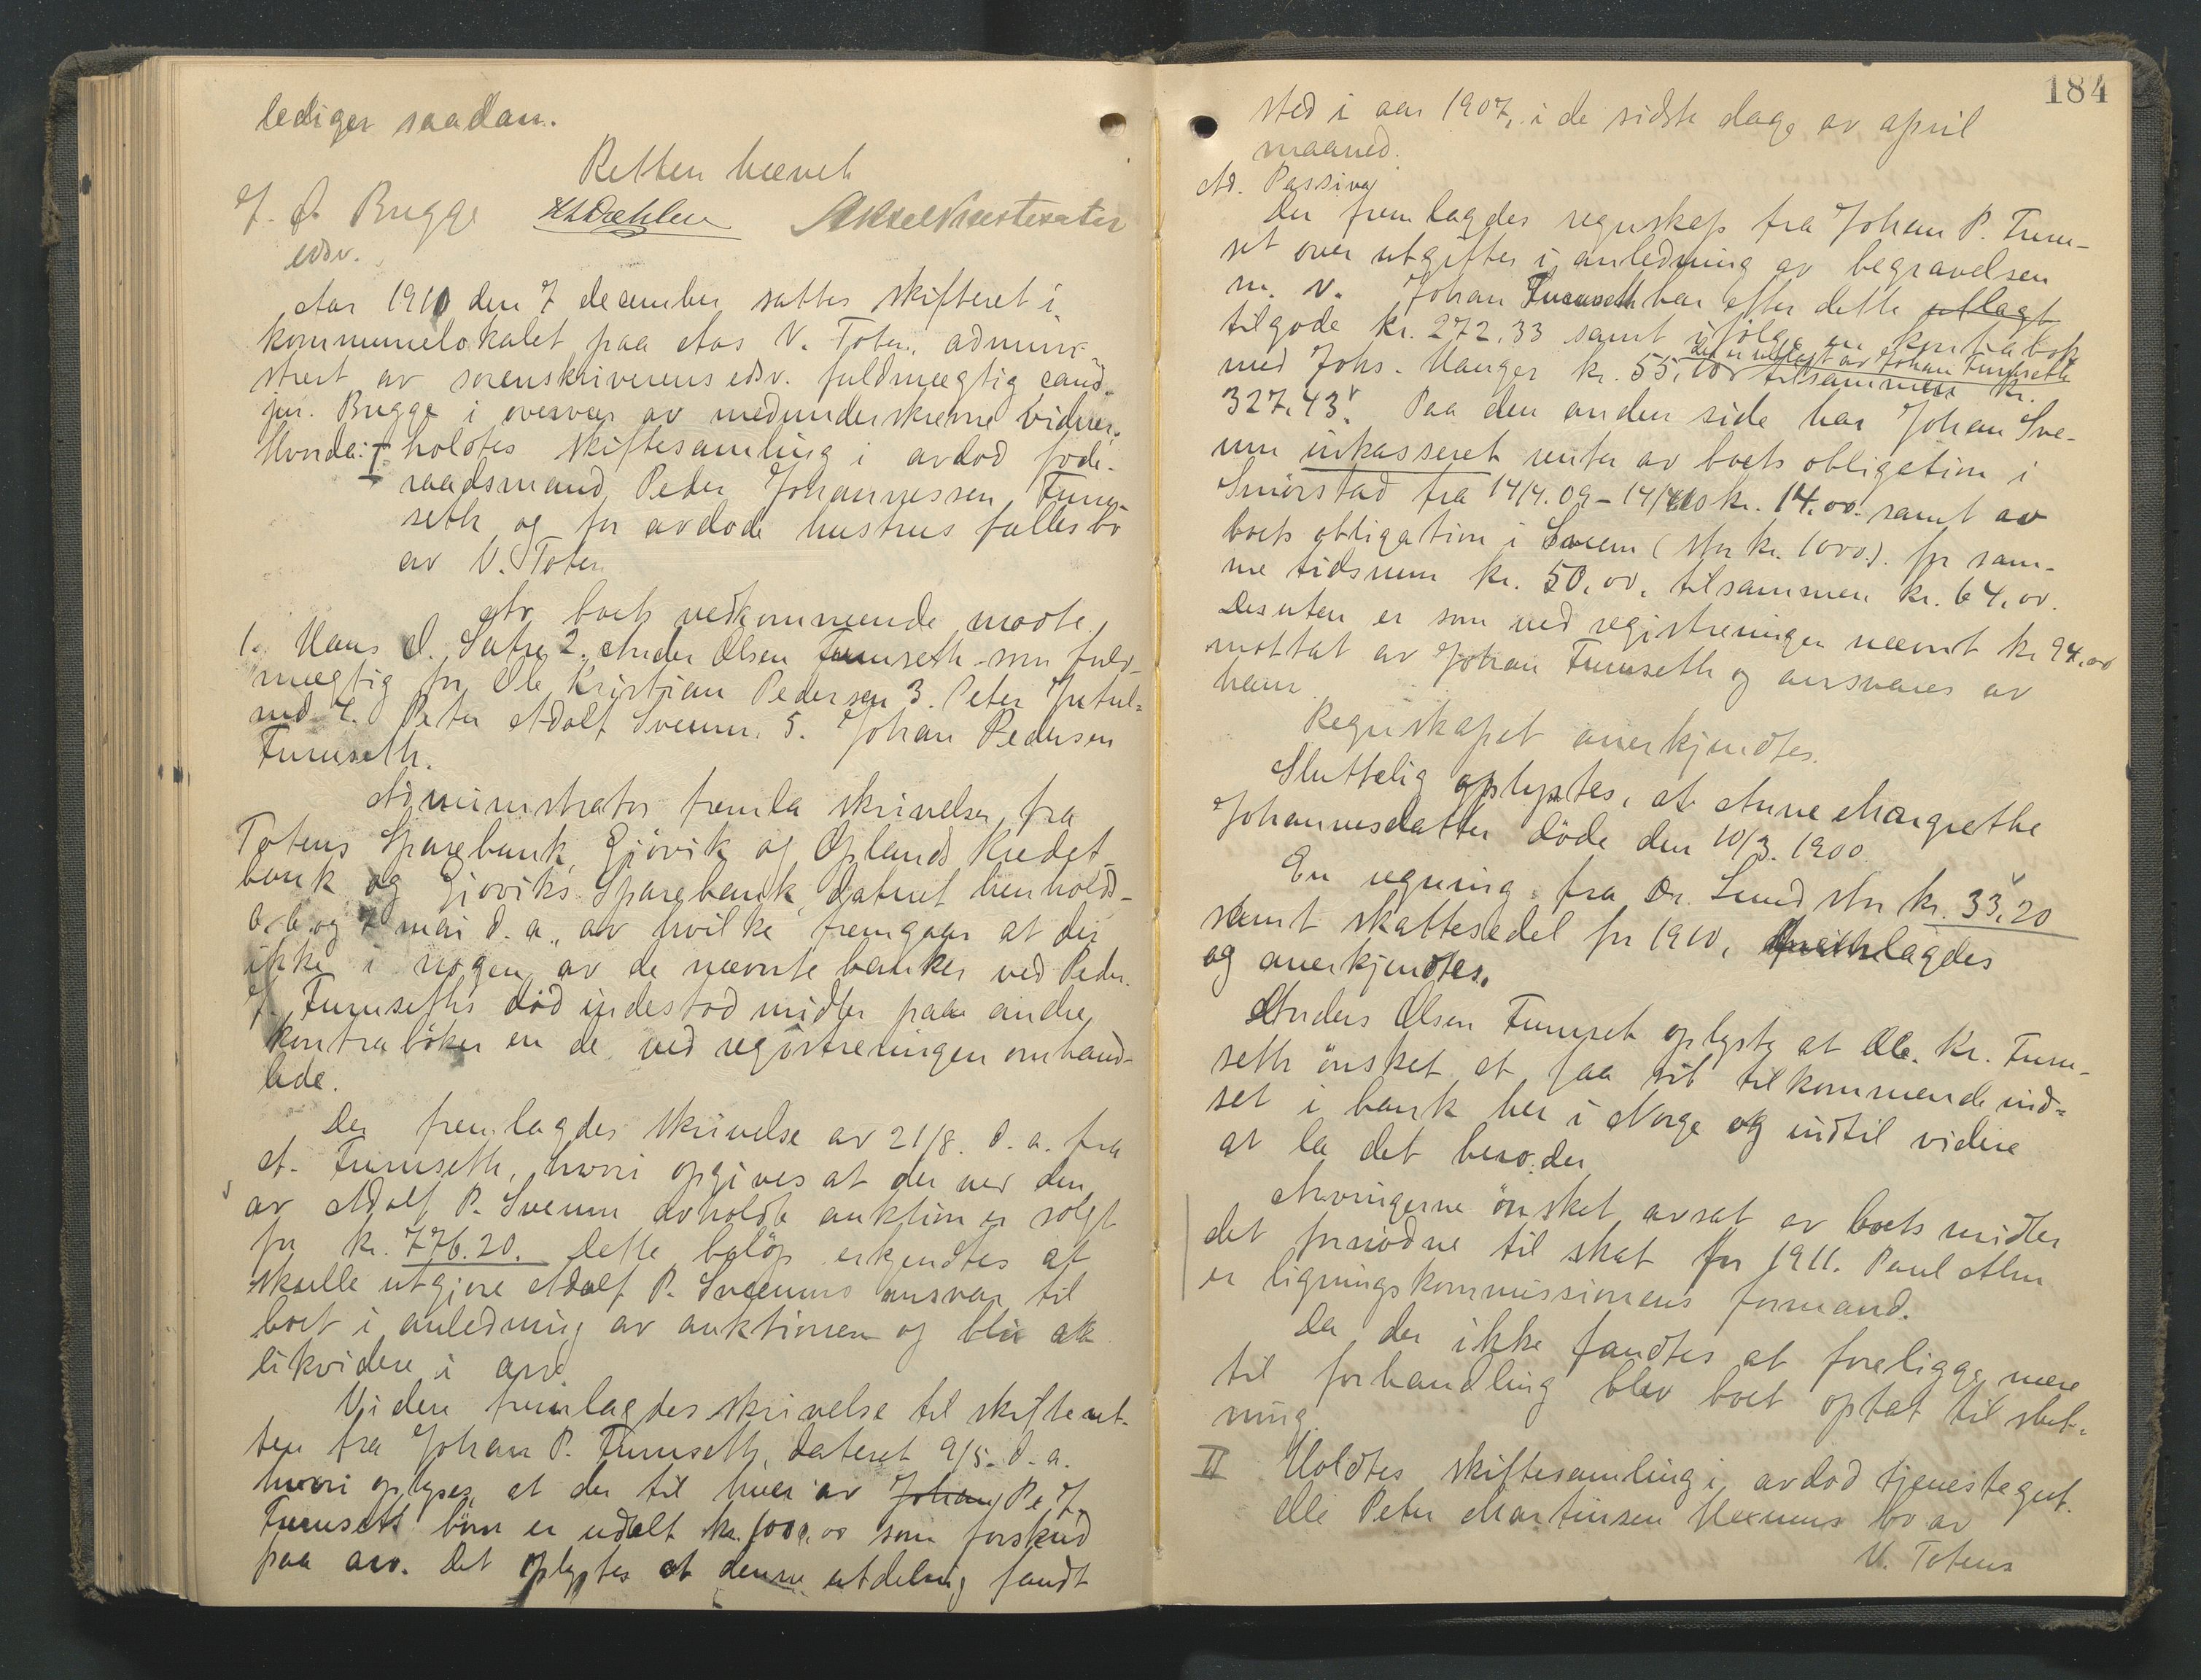 lediger saadan.
Retten hævet
J. Ø. Bugge
edsv.
Aar 1910 den 7 december sattes skifteret i
kommunelokalet paa Aas V. Toten, admini-
strert av sorenskriverens edsv. fuldmægtig cand.
jur. Bugge i overvær av medunderskrevne vidner.
Hvorda: I. holdtes skiftesamling i avdød føde-
raadsmand Peder Johannessen Furu-
seth og før avdøde hustrus fællesbo
av V. Toten
Av boets vedkommende møtte
1. Hans O. Sætre 2. Anders Olsen Furuseth som fuld-
mægtig for Ole Kristian Pedersen 3. Peter Jutul-
rud 4. Peter Adolf Sveum. 5. Johan Pedersen
Furuseth.
Administrator fremla skrivelser fra
Totens Sparebank, Gjøvik og Oplands Kredet-
bank og Gjøviks Sparebank, dateret henholds-
6. og 7 mai d.a., av hvilke fremgaar at der
ikke i nogen av de nævnte banker ved Peder
J. Furuseths død indestod midler paa andre
kontrabøker en de ved registreringen omhand-
lede.
Der fremlagdes skrivelse av 21/8. d.a. fra
A. Furuseth, hvori opgives at der ved den
av Adolf P. Sveum avholdte auktion er solgt
for kr. 776.20. Dette beløp erkjendtes at
skulle utgjøre Adolf P. Sveums ansvar til
boet i anledning av auktionen og blir at
likvidere i arv.
Videre fremlagdes skrivelse til skifteret-
ten fra Johan P. Furuseth, dateret 9/5. d.a.
hvori oplyses, at der til hver av Johan P. J.
Furuseth børn er udelt kr. 1000.00 som forskud
paa arv. Det oplystes at denne utdeling fandt
184
sted i aar 1907, i de sidste dage av april
maaned.
Ad. Passiva
Der fremlagdes regnskap fra Johan P. Furu-
set over utgifter i anledning av begravelsen
m. v. Johan Furuseth har efter dette utlagt
tilgode kr. 272.33 samt ifølge en kontrabok
der er utlagt av Johan Furuseth
med Johs. Hanger kr. 55,10 tilsammen kr.
327.43. Paa den anden side har Johan Sve-
um inkasseret renter av boets obligation i
Smørstad fra 14/4.09 - 14/4 10 kr. 14.00 samt av
boets obligation i Sveum (stor kr. 1000.) for sam-
me tidsrum kr. 50.00, tilsammen kr. 64.00.
Desuten er som ved registreringen nævnt kr 94.00
mottat av Johan Furuseth og ansvares av
ham.
Regnskapet anerkjendtes.
Sluttelig oplystes, at Anne Margrethe
Johannesdatter døde den 10/3. 1900.
En regning fra Dr. Lund stor kr. 33.20
samt skattesedel for 1910, fremlagdes
og anerkjendtes.
Anders Olsen Furuset oplyste at Ole Kr. Furu-
seth ønsket at faa sit tilkommende ind-
sat i bank her i Norge og indtil videre
at la det bero der.
Arvingerne ønsket avsat av boets midler
det fornødne til skat for 1911. Paul Alm
er ligningskommissionens formand.
Da der ikke fandtes at foreligge mere
til forhandling blev boet optat til slut-
ning.
II Holdtes skiftesamling i avdød tjenestegut
Peter Martinsen bo av
V. Totens